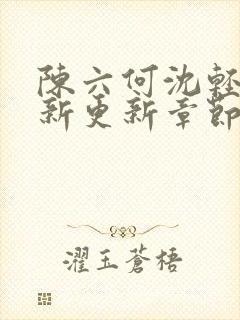 陳六何沈輕
新更新章節
濯玉蒼梧